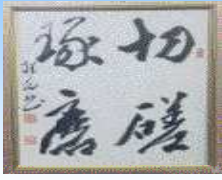 切磋
琢磨